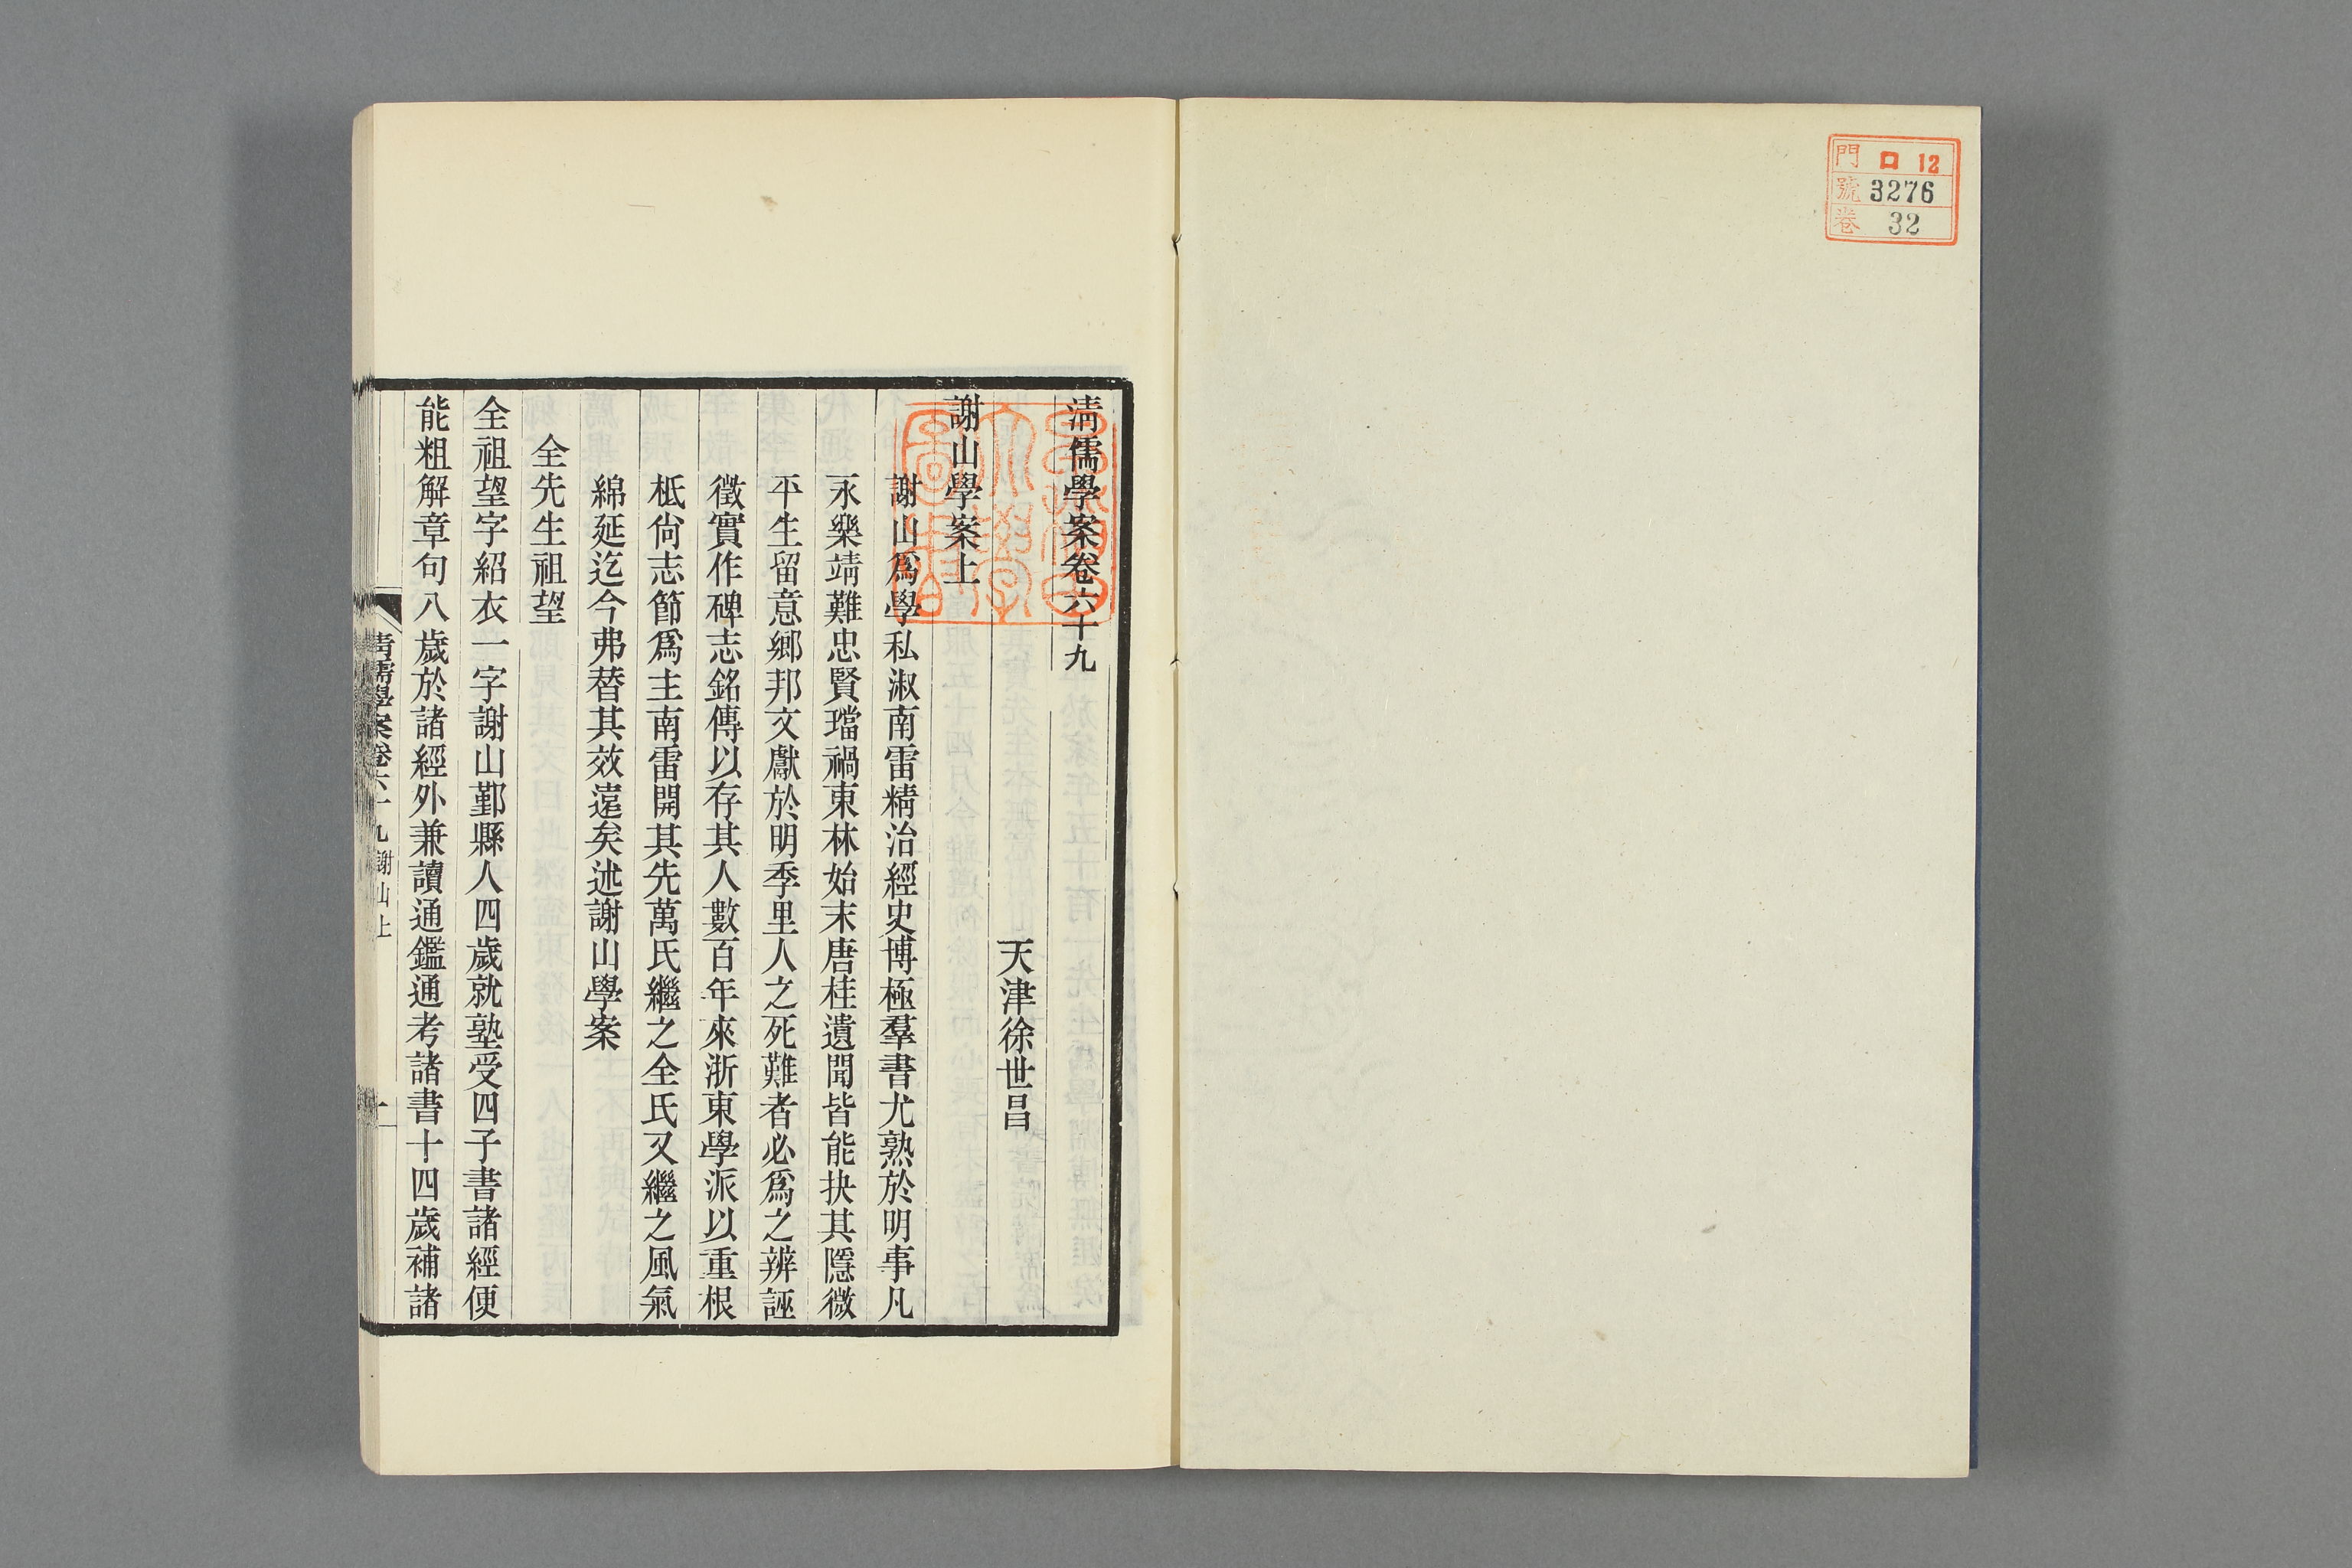 門 口 12
號 3276
卷 32
淸儒學案卷六十九
天津徐世昌
謝山學案上
謝山爲學私淑南雷精治經史博極羣書尤熟於明事凡
永樂靖難忠賢璫禍東林始末唐桂遺聞皆能抉其隱微
平生留意鄉邦文獻於明季里人之死難者必爲之辨誣
徵實作碑志銘傳以存其人數百年來浙東學派以重根
柢尙志節爲主南雷開其先萬氏繼之全氏又繼之風氣
綿延迄今弗替其效遠矣述謝山學案
全先生祖望
全祖望字紹衣一字謝山鄞縣人四歲就塾受四子書諸經便
能粗解章句八歲於諸經外兼讀通鑑通考諸書十四歲補諸
淸儒學案卷六十九 謝山上 一